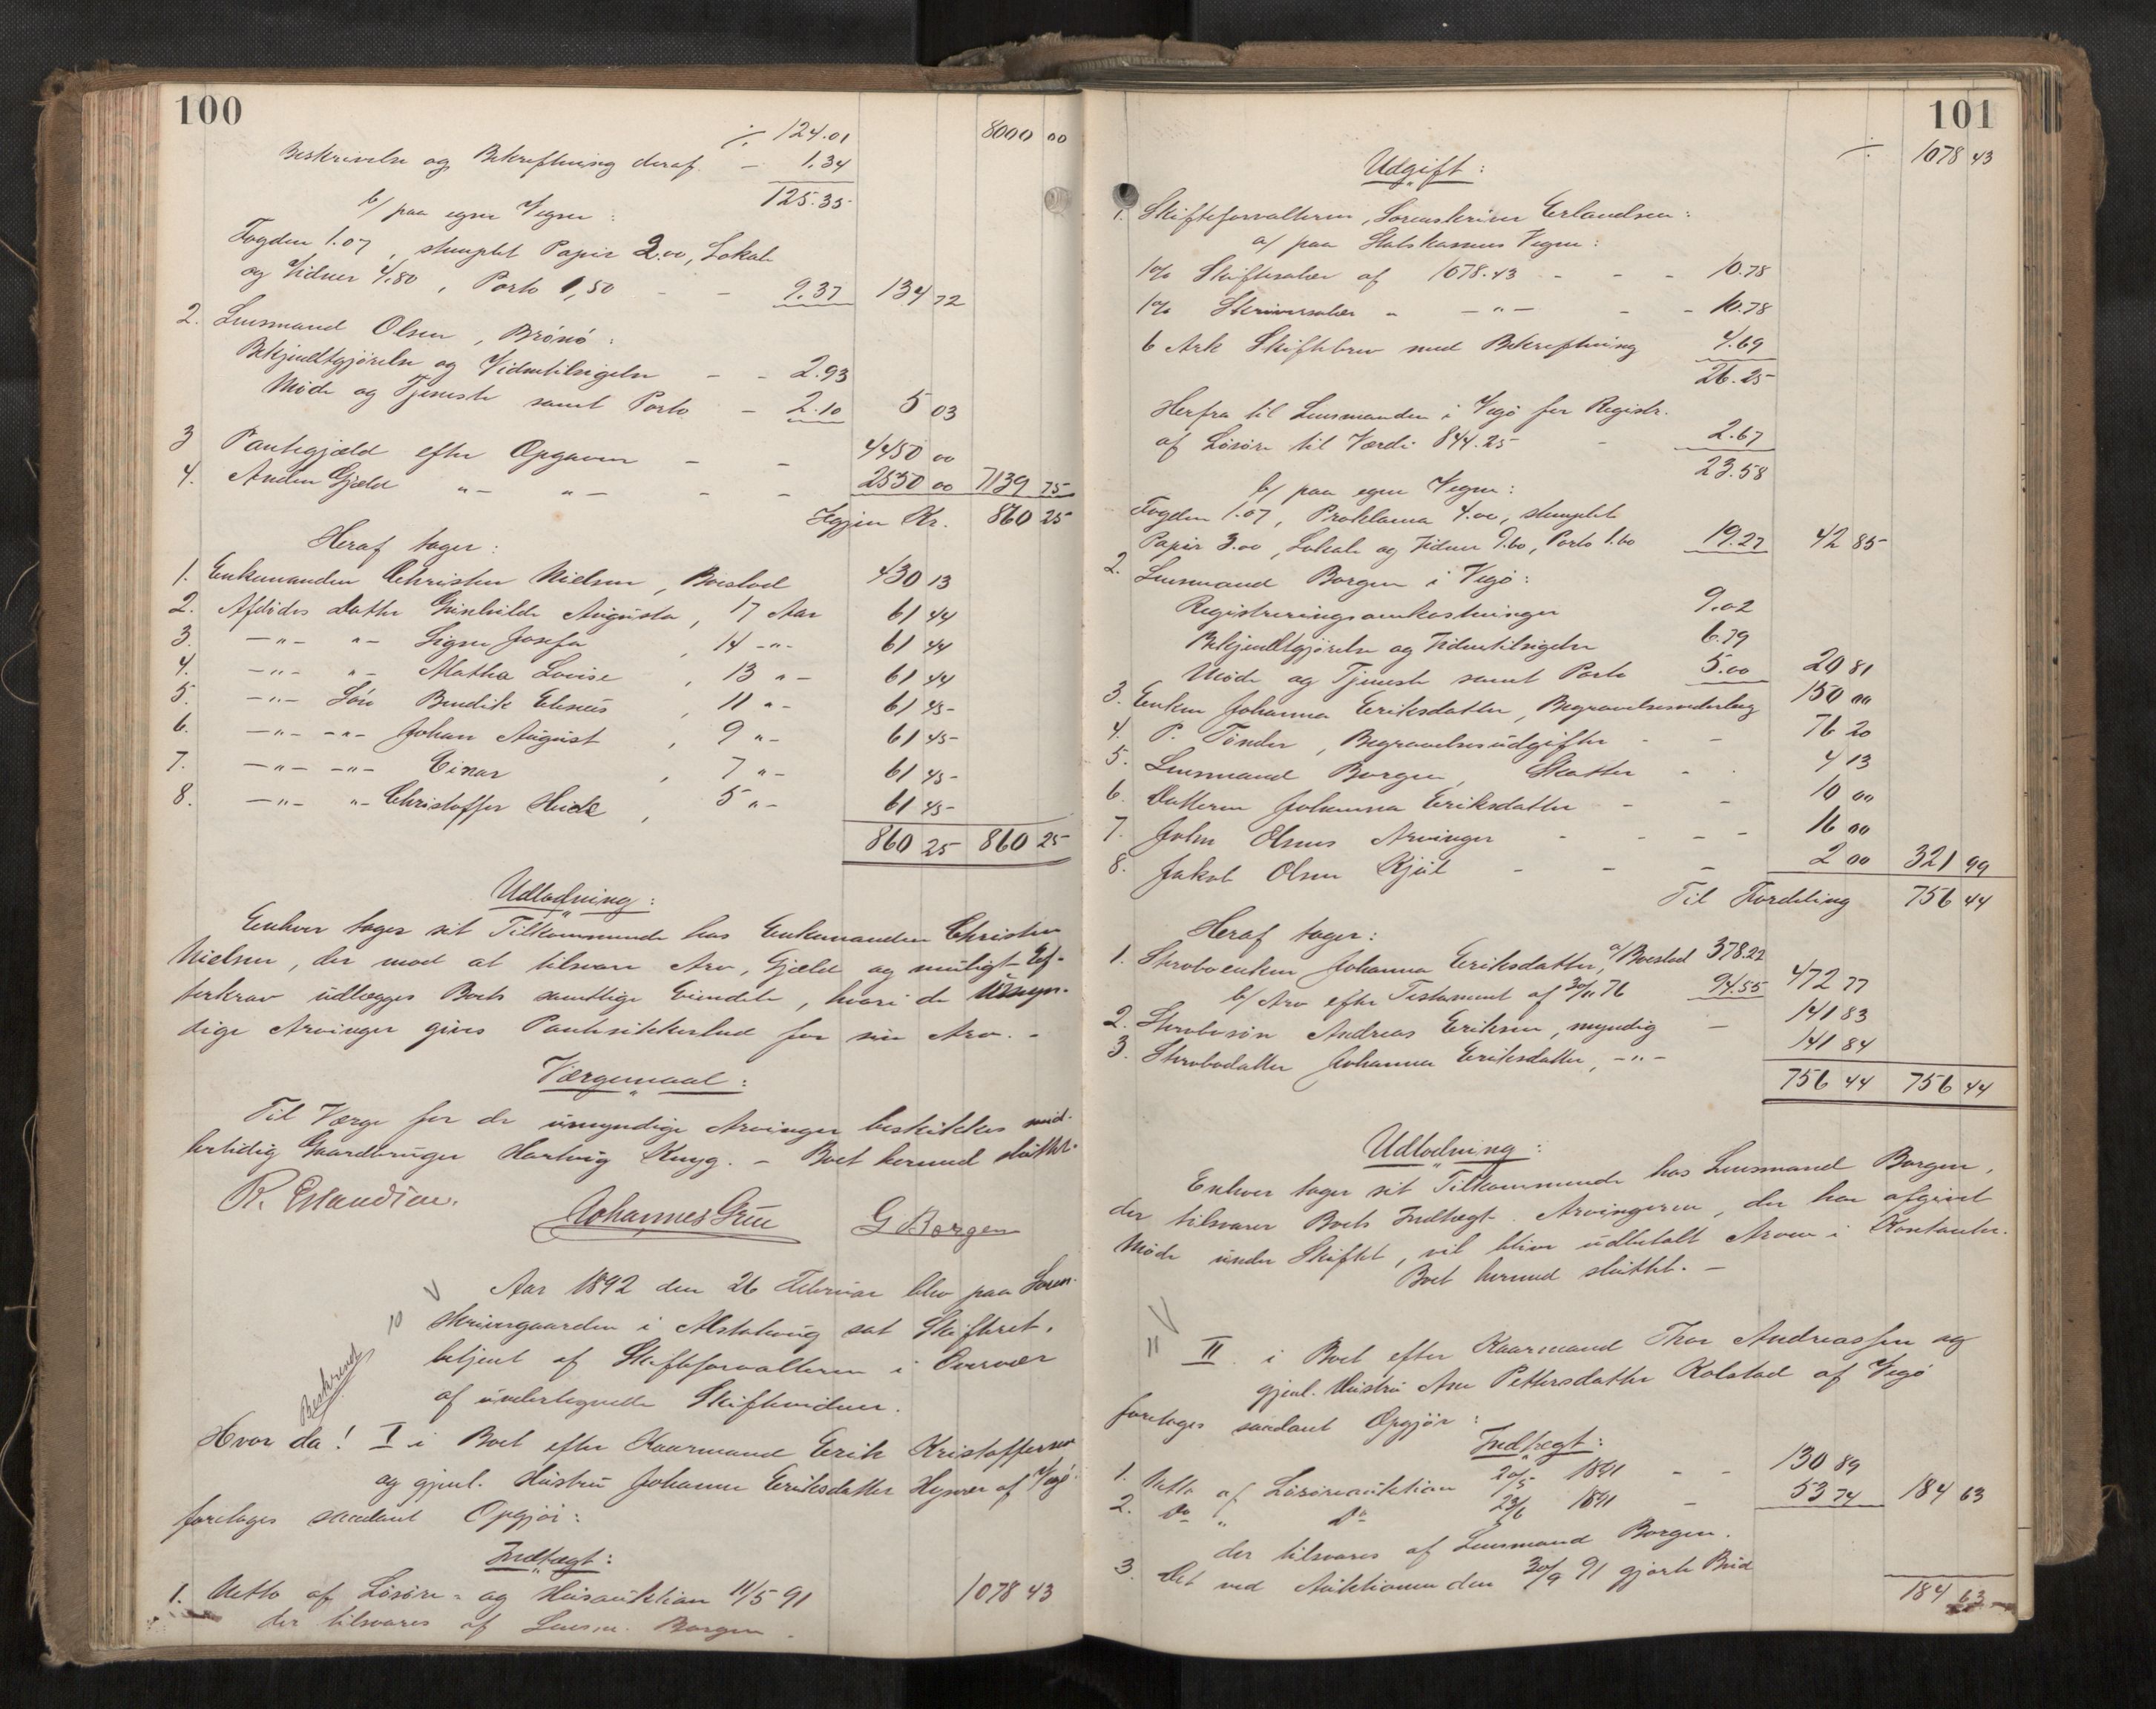 100
÷ 124.01 8000 00
Beskrivelse og Bekræftning deraf. — 1.34
125.35
b/ paa egne Vegne:
Fogden 1.07, stemplet Papir 2.00, Lokale
og Vidner 4.80, Porto 1,50 — — 9.37 134 72
2. Lensmand Olsen, Brönö:
Bekjendtgjörelse og Vidnetilsigelse — — 2.93
Möde og Tjeneste samt Porto — 2.10 5 03
3 Pantegjæld efter Opgaven — — 4450 00
4. Anden Gjæld „— „— — — 2550 00 7139 75
Igjen Kr. 860 25
Heraf tager:
1. Enkemanden Christen Nielsen, Boestad 430 13
2. Afdödes Datter Gunhilde Augusta, 17 Aar 61 44
3. —„— „— Signe Josefa, 14 —„— 61 44
4. —„— „— Mathea Lovise, 13 „— 61 44
5. —„— Sön Bendik Elenus, 11 „— 61 45
6. —„— —„— Johan August, 9 „— 61 45
7. —„— —„— Einar, 7 „— 61 45
8. —„— „— Christoffer Hude, 5 „— 61 45
860 25 860 25
Udlodning:
Enhver tager sit Tilkommende hos Enkemanden Christen
Nielsen, der mod at tilsvare Arv, Gjæld og muligt Ef-
terkrav udlægges Boets samtlige Eiendele, hvori de Umyn-
dige Arvinger gives Pantesikkerhed for sin Arv. —
Værgemaal:
Til Værge for de umyndige Arvinger beskikkes mid-
lertidig Gaardbruger Hartvig Knyg. — Boet hermed sluttet.
R. Erlandsen.
Johannes Grue G Borgen
10 V
Aar 1892 den 26 Februar blev paa Soren-
skrivergaarden i Alstahaug sat Skifteret,
betjent af Skifteforvalteren i Overvær
af undertegnede Skiftevidner.
Beskrevet
Hvor da! I i Boet efter Kaarmand Erik Kristoffersen
og gjenl. Hustru Johanna Eriksdatter Hysvær af Vegö
foretages saadant Opgjör:
Indtægt:
1. Netto af Lösöre- og Husauktion 11/5 91 1078 43
der tilsvares af Lensm. Borgen.
101
÷ 1078 43
Udgift:
1. Skifteforvalteren, Sorenskriver Erlandsen:
a/ paa Statskassens Vegne:
1% Skiftesalær af 1078.43 — — — 10.78
1% Skriversalær „ —„— — — 10.78
6 Ark Skiftebrev med Bekræftning 4.69
26.25
Herfra til Lensmanden i Vegö for Registr.
af Lösöre til Værdi 844.25 — 2.67
23.58
b/ paa egne Vegne:
Fogden 1.07, Proklama 4.00, stemplet
Papir 3.00, Lokale og Vidner 9.60, Porto 1.60 19.27 42 85
2. Lensmand Borgen i Vegö:
Registreringsomkostninger 9.02
Bekjendtgjörelse og Vidnetilsigelse 6.79
Möde og Tjeneste samt Porto 5.00 20 81
3. Enken Johanna Eriksdatter, Begravelsesvederlag 150 00
4. P. Tönder, Begravelsesudgifter — — 76 20
5. Lensmand Borgen, Skatter — . 4 13
6. Datteren Johanna Eriksdatter — — 10 00
7. John Olsens Arvinger — — — — 16 00
8. Jakob Olsen Kjul — — — 2 00 321 99
Til Fordeling 756 44
Heraf tager:
1. Stervboenken Johanna Eriksdatter, a/ Boeslod 378.22
b/ Arv efter Testament af 30/11 76 94.55 472 77
2. Stervbosön Andreas Eriksen, myndig — 141 83
3. Stervbodatter Johanna Eriksdatter, —„— 141 84
756 44 756 44
Udlodning:
Enhver tager sit Tilkommende hos Lensmand Borgen,
der tilsvarer Boets Indtægt. Arvingerne, der har afgivet
Möde under Skiftet, vil blive udbetalt Arven i Kontanter.
Boet hermed sluttet. —
11 V
II i Boet efter Kaarmand Thor Andreassen og
gjenl. Hustru Ane Pettersdatter Kolstad af Vegö
foretages saadant Opgjör:
Indtægt:
1. Netto af Lösöreauktion 20/5 1891 — — 130 89
2. Do „ Do 23/6 1891 — 53 74 184 63
der tilsvares af Lensmand Borgen.
3. Det ved Auktionen den 30/9 91 gjorte Bud
184 63